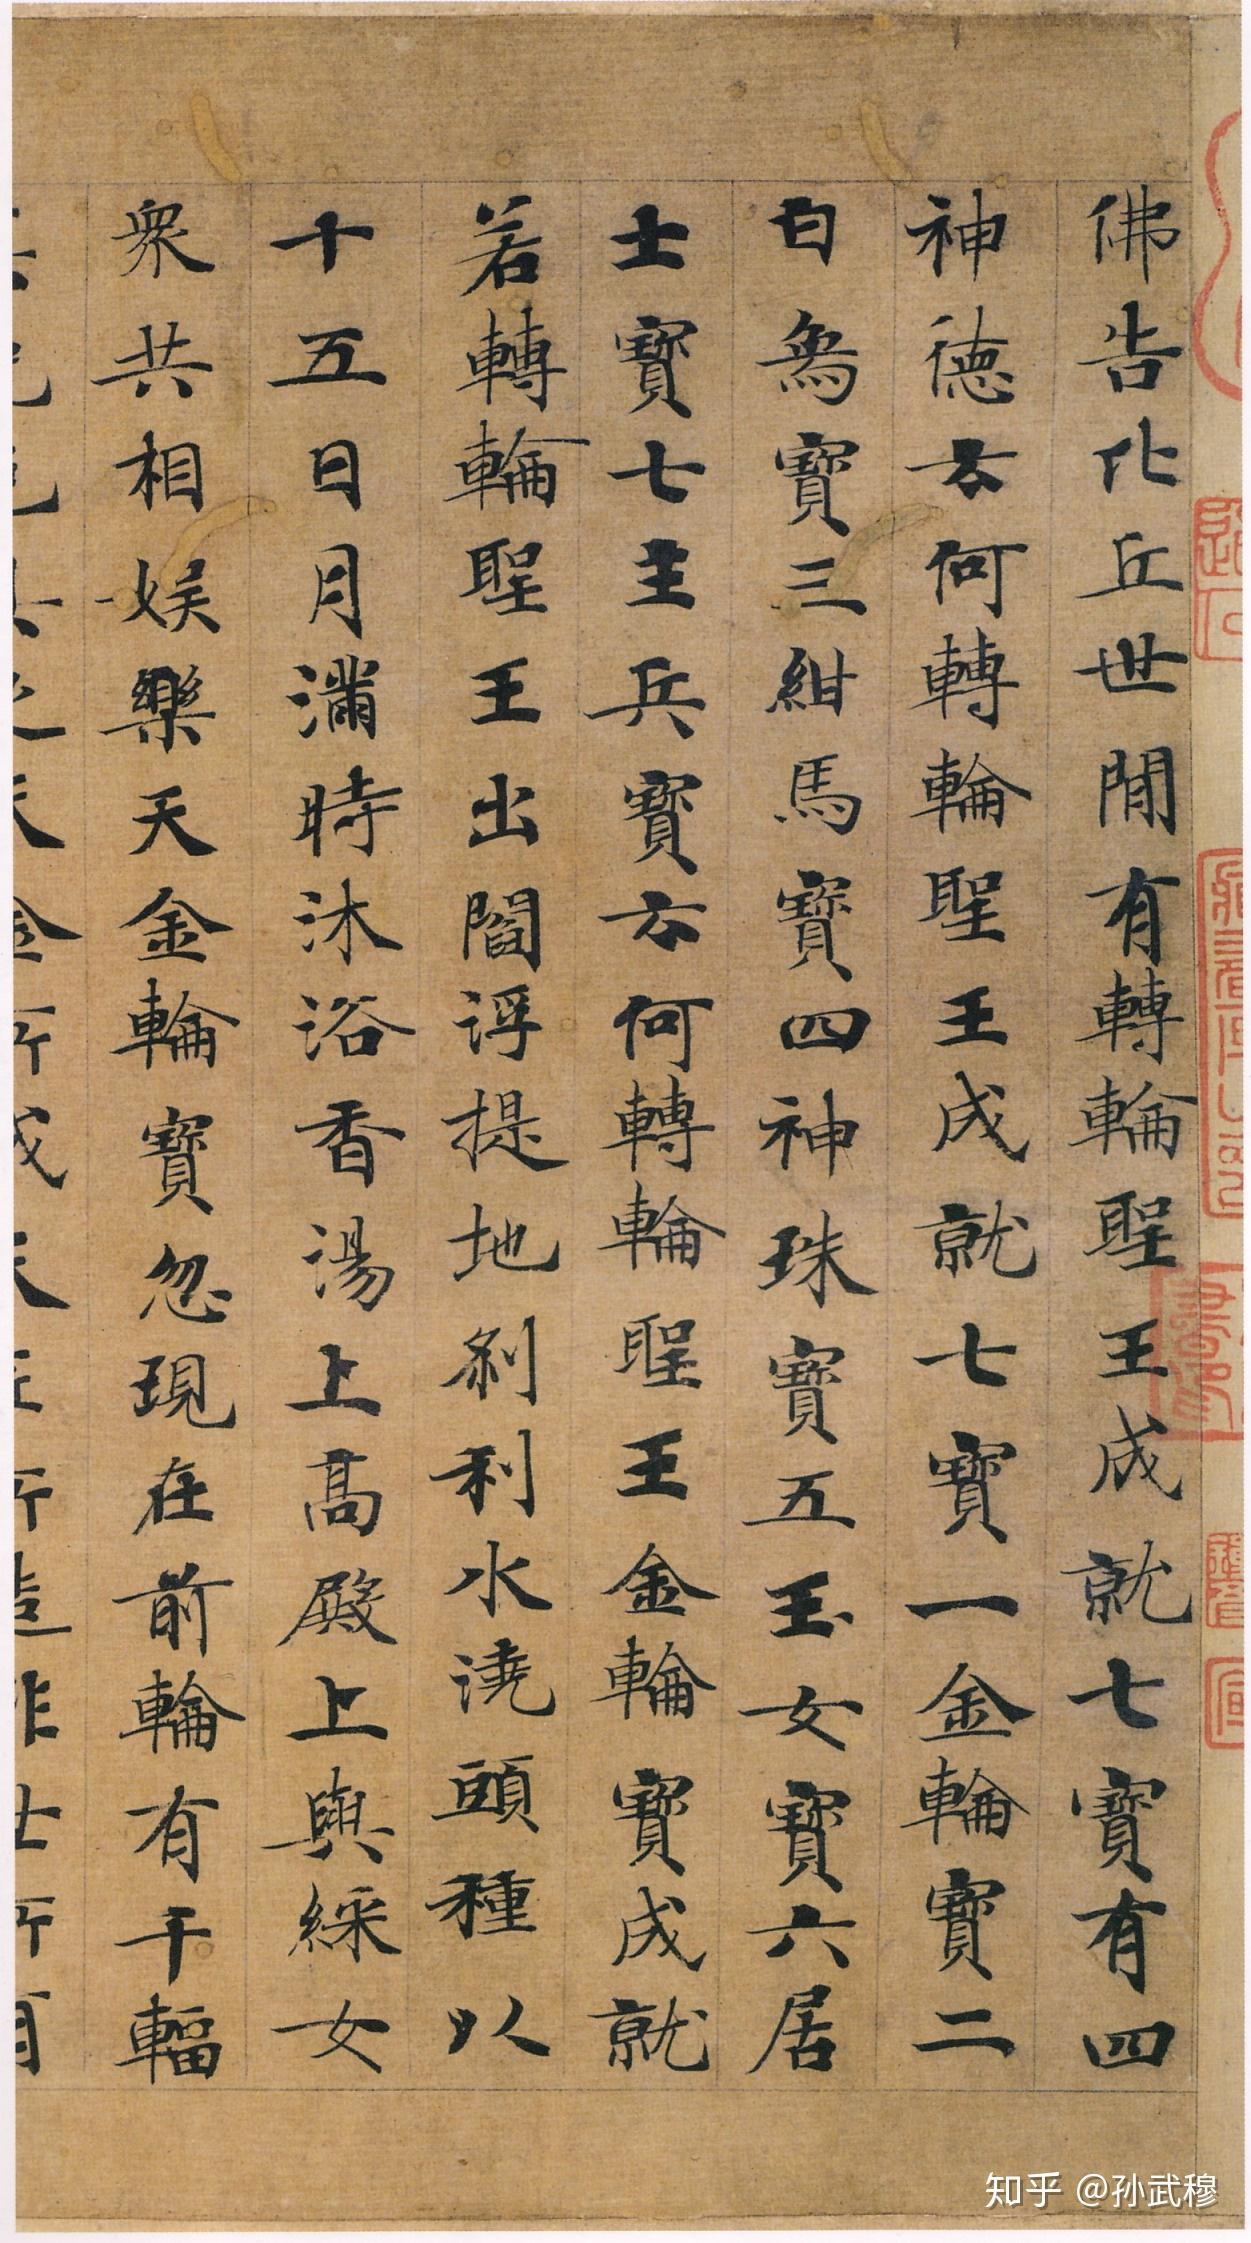 佛告比丘世間有轉輪聖王成就七寶有四
神德云何轉輪聖王成就七寶一金輪寶二
白象寶三紺馬寶四神珠寶五玉女寶六居
士寶七主兵寶云何轉輪聖王金輪寶成就
若轉輪聖王出閻浮提地剎利水澆頭種以
十五日月滿時沐浴香湯上高殿上與綵女
眾共相娛樂天金輪寶忽現在前輪有千輻
知乎 @孙武穆